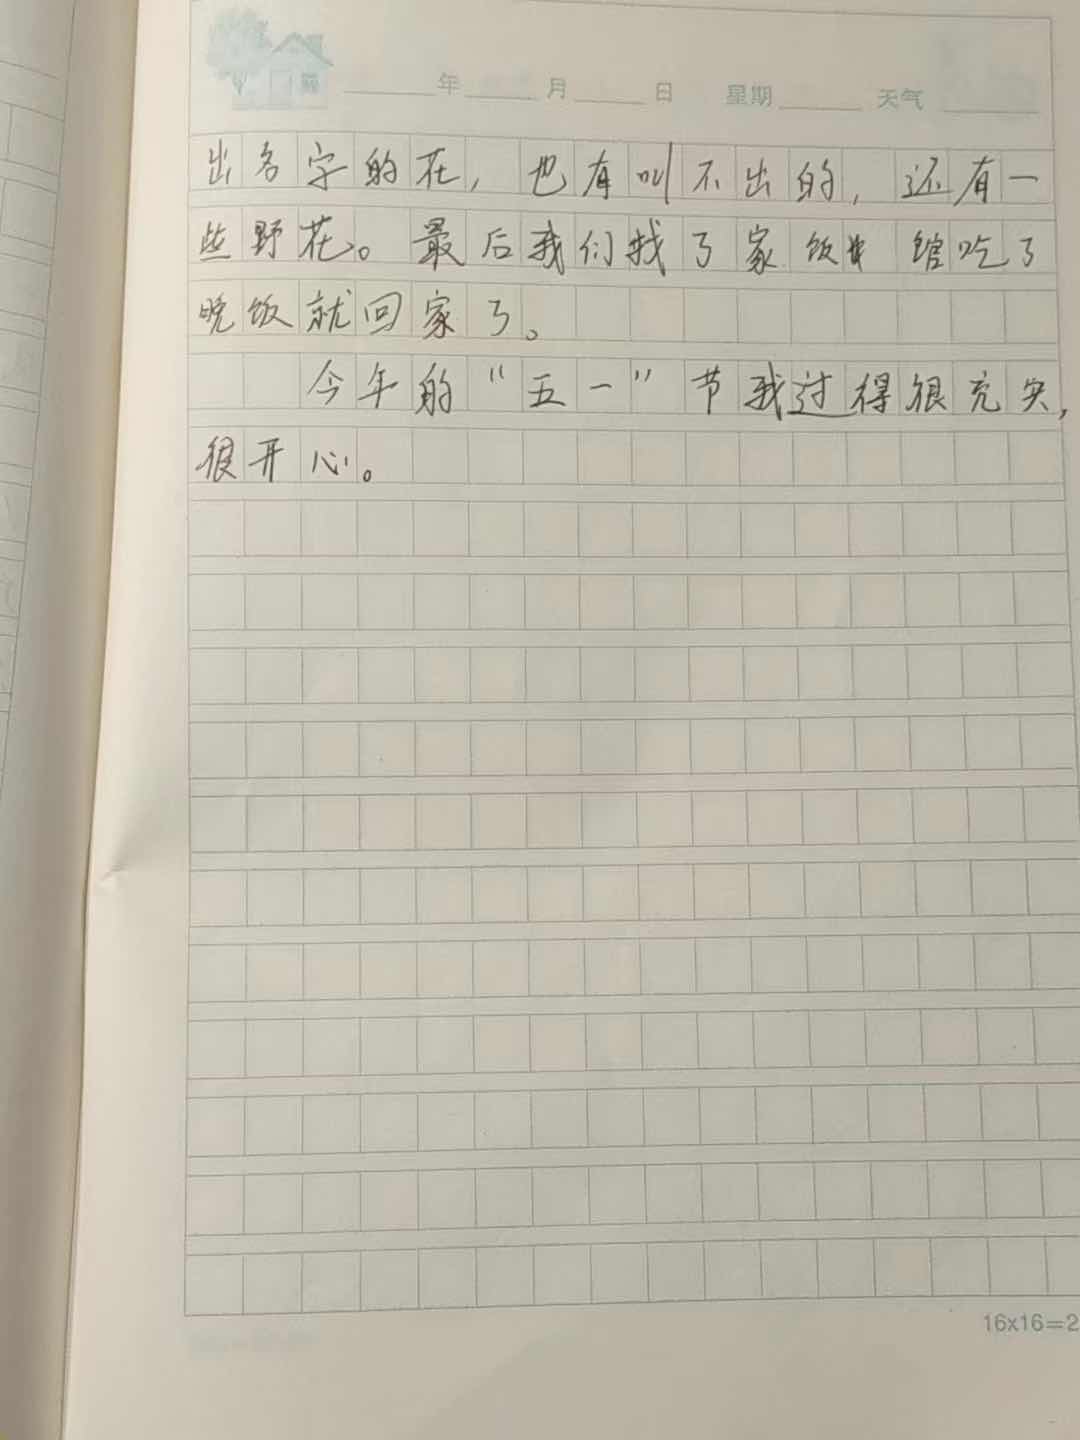 年 月 日 星期 天气
出名字的花，也有叫不出的，还有一
些野花。最后我们找了家饭馆吃了
晚饭就回家了。
今年的“五一”节我过得很充实，
很开心。
16x16=2